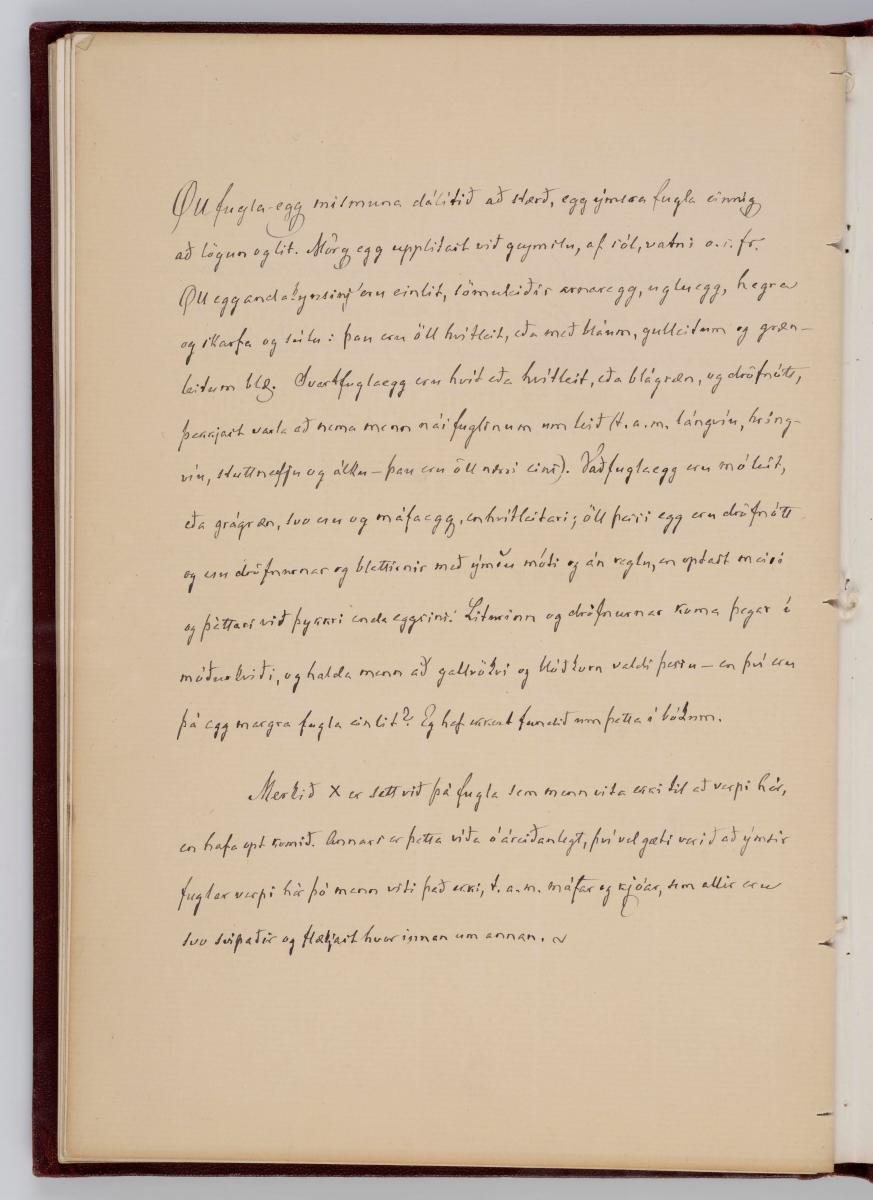 Öll fugla-egg mismuna dálítið að stærð, egg ýmsra fugla einnig
að lögun og lit. Mörg egg upplitast við geymslu, af sól, vatni o.s.fr.
Öll egg andakynsins eru einlit, sömuleiðis arnaregg, ugluegg, hegra
og skarfa og súlu: þau eru öll hvítleit, eða með bláum, gulleitum og græn-
leitum blæ. Svartfuglaegg eru hvít eða hvítleit, eða blágræn, og dröfnótt,
þekkjast varla að nema menn nái fuglinum um leið (t.a.m. lángvíu, hríng-
víu, stuttnefju og álku – þau eru öll nærri eins). Vaðfuglaegg eru móleit,
eða grágræn, svo eru og máfaegg, en hvítleitari; öll þessi egg eru dröfnótt
og eru dröfnurnar og blettirnir með ýmsu móti og án reglu, en optast meiri
og þèttari við þykkri enda eggsins. Liturinn og dröfnurnar koma þegar í
móðurkviði, og halda menn að gallvökvi og blóðkorn valdi þessu – en því eru
þá egg margra fugla einlit? Eg hef ekkert fundið um þetta í bókum.
Merkið × er sett við þá fugla sem menn vita ekki til að verpi hér,
en hafa opt komið. Annars er þetta víða óáreiðanlegt, því vel gæti verið að ýmsir
fuglar verpi hèr þó menn viti það ekki, t.a.m. máfar og kjóar, sem allir eru
svo svipaðir og flækjast hvor innan um annan.